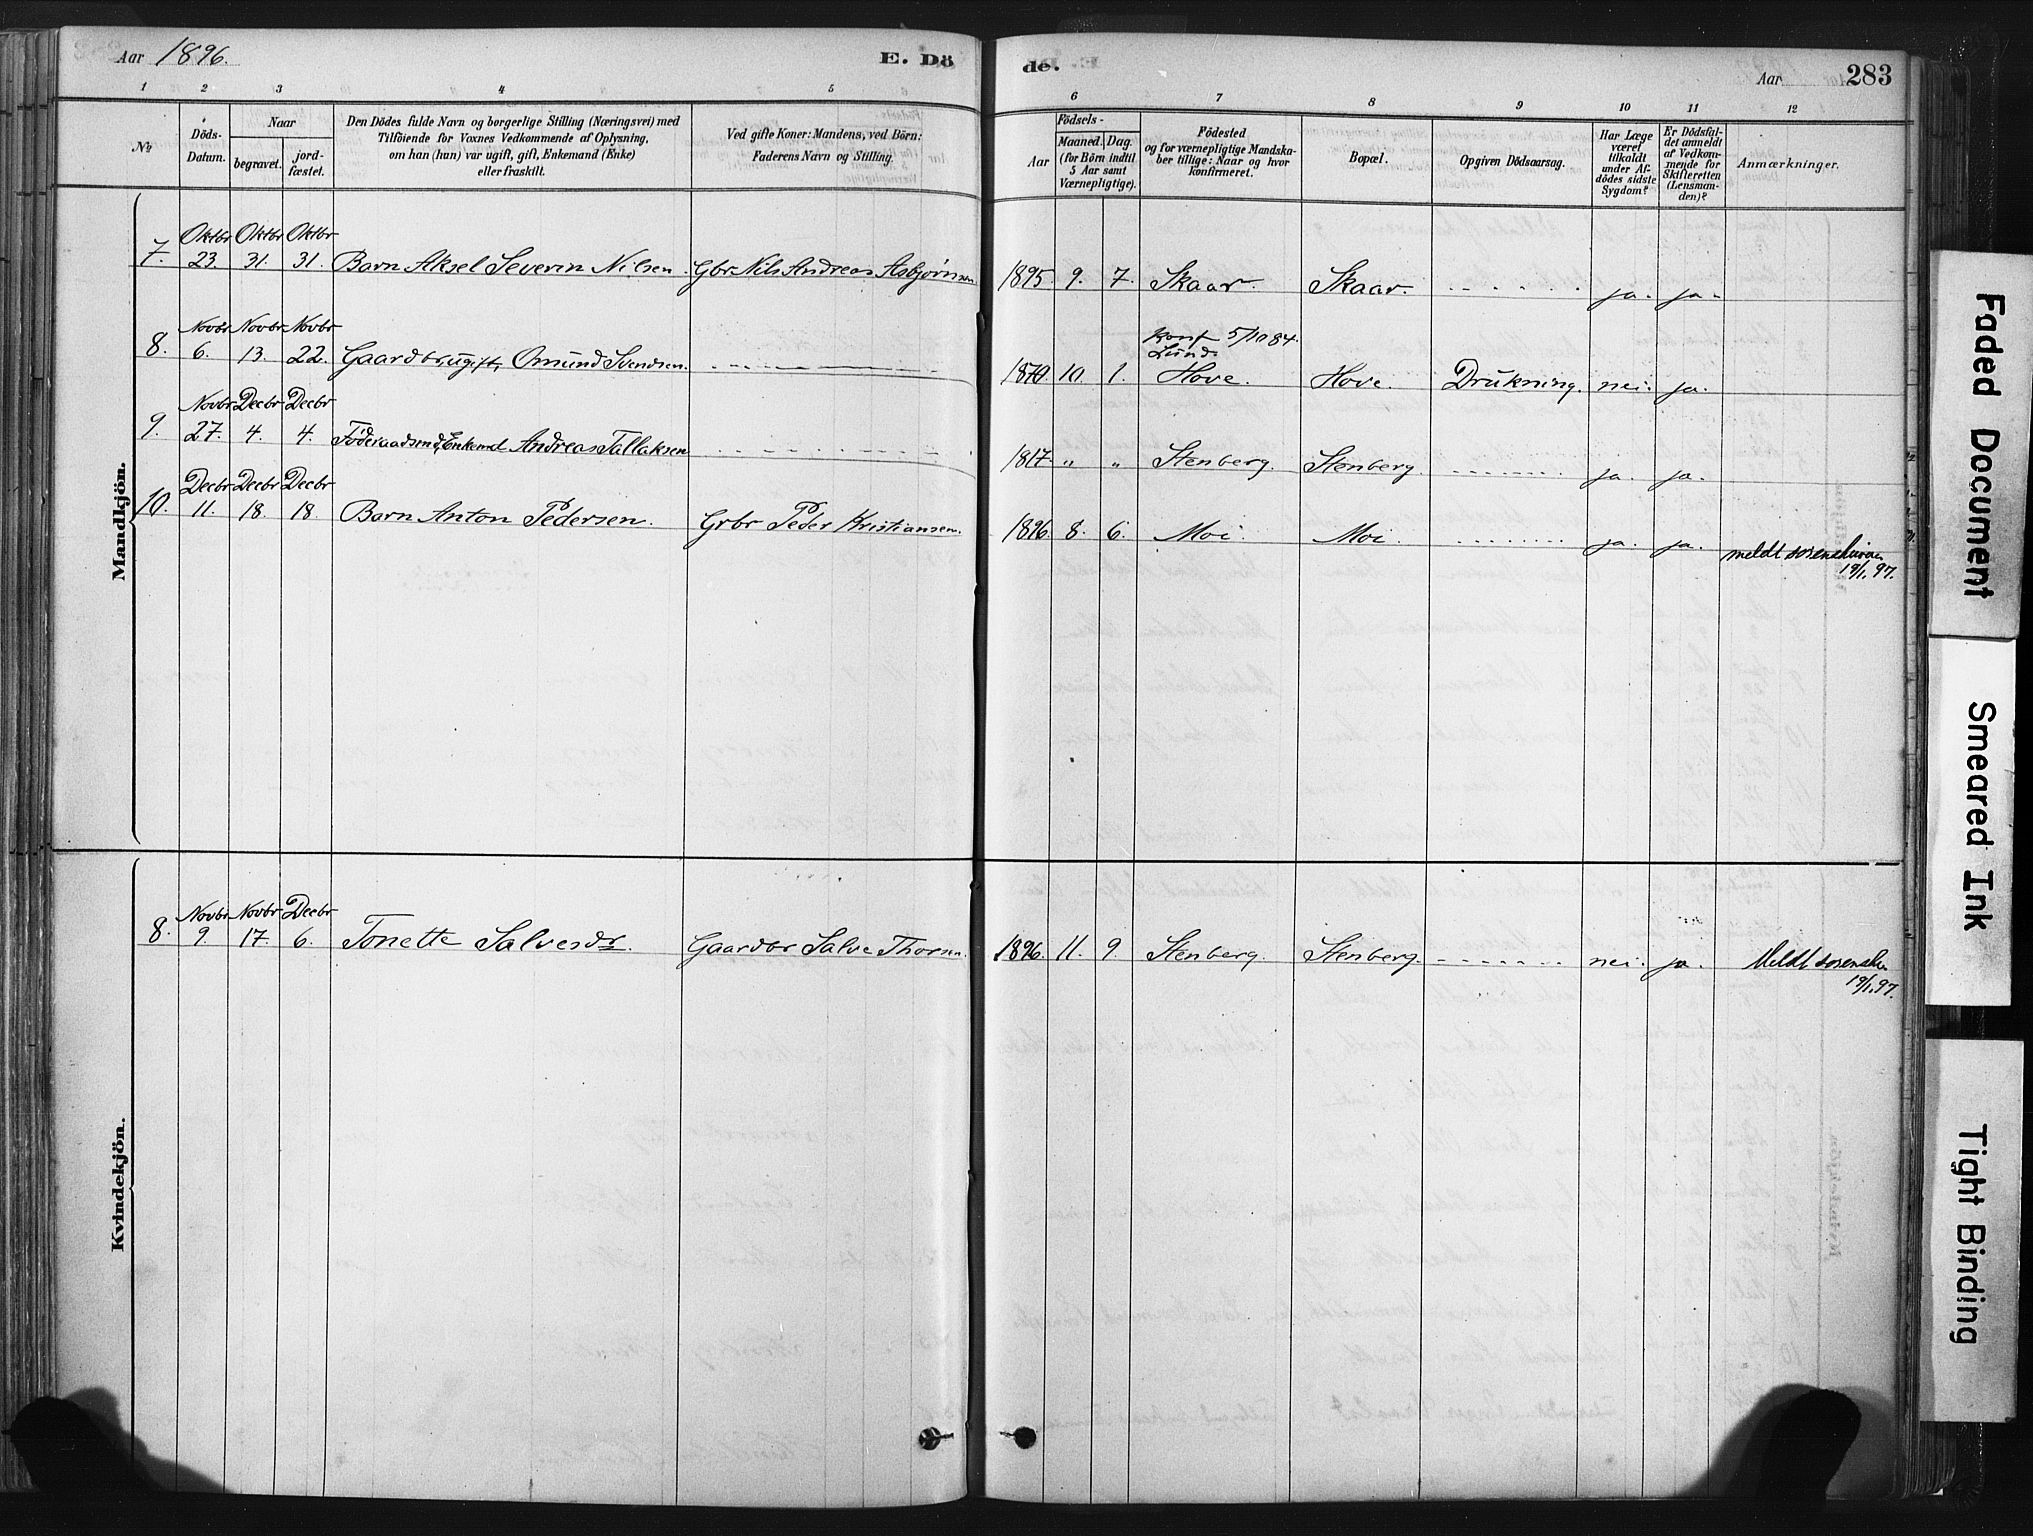 Aar 1896.
E. Dö
de.
Aar
283
1 2 3 4 5
6 7 8 9 10 11 12
№
Döds-
Datum.
Naar
begravet.
jord-
fæstet.
Den Dödes fulde Navn og borgerlige Stilling (Næringsvei) med
Tilföiende for Voxnes Vedkommende af Oplysning,
om han (hun) var ugift, gift, Enkemand (Enke)
eller fraskilt.
Ved gifte Koner: Mandens, ved Börn:
Faderens Navn og Stilling.
Födsels-
Aar
Maaned.
Dag.
(for Börn indtil
5 Aar samt
Værnepligtige).
Födested
og for værnepligtige Mandska-
ber tillige: Naar og hvor
konfirmeret.
Bopæl.
Opgiven Dödsaarsag.
Har Læge
været
tilkaldt
under Af-
dödes sidste
Sygdom?
Er Dödsfal-
det anmeldt
af Vedkom-
mende for
Skifteretten
(Lensman-
den)?
Anmærkninger.
Mandkjön.
Oktbr Oktbr Oktbr
7. 23. 31. 31. Barn Aksel Severin Nilsen. Gbr Nils Andreas Asbjørnsen 1895. 9. 7. Skaar. Skaar. ja. ja.
Novbr Novbr Novbr
Konf 5/10 84.
Lund
8. 6. 13. 22. Gaardbr, ugift, Omund Svendsen. 1870. 10. 1. Hove. Hove. Drukning. nei. ja.
Novbr Decbr Decbr
9. 27. 4. 4. Föderaadsmd, Enkemd Andreas Tallaksen 1817. " " Stenberg. Stenberg. ja. ja.
Decbr Decbr Decbr
10. 11. 18. 18. Barn Anton Pedersen. Grbr Peder Kristiansen. 1896. 8. 6. Moi. Moi. ja. ja. meldt
19/1. 97.
Kvindekjön.
Novbr Novbr Decbr
8. 9. 17. 6. Tonette Salvesdr. Gaardbr Salve Thorsen. 1896. 11. 9. Stenberg. Stenberg. nei. ja. Meldt
19/1. 97.
Faded Document
Smeared Ink
Tight Binding